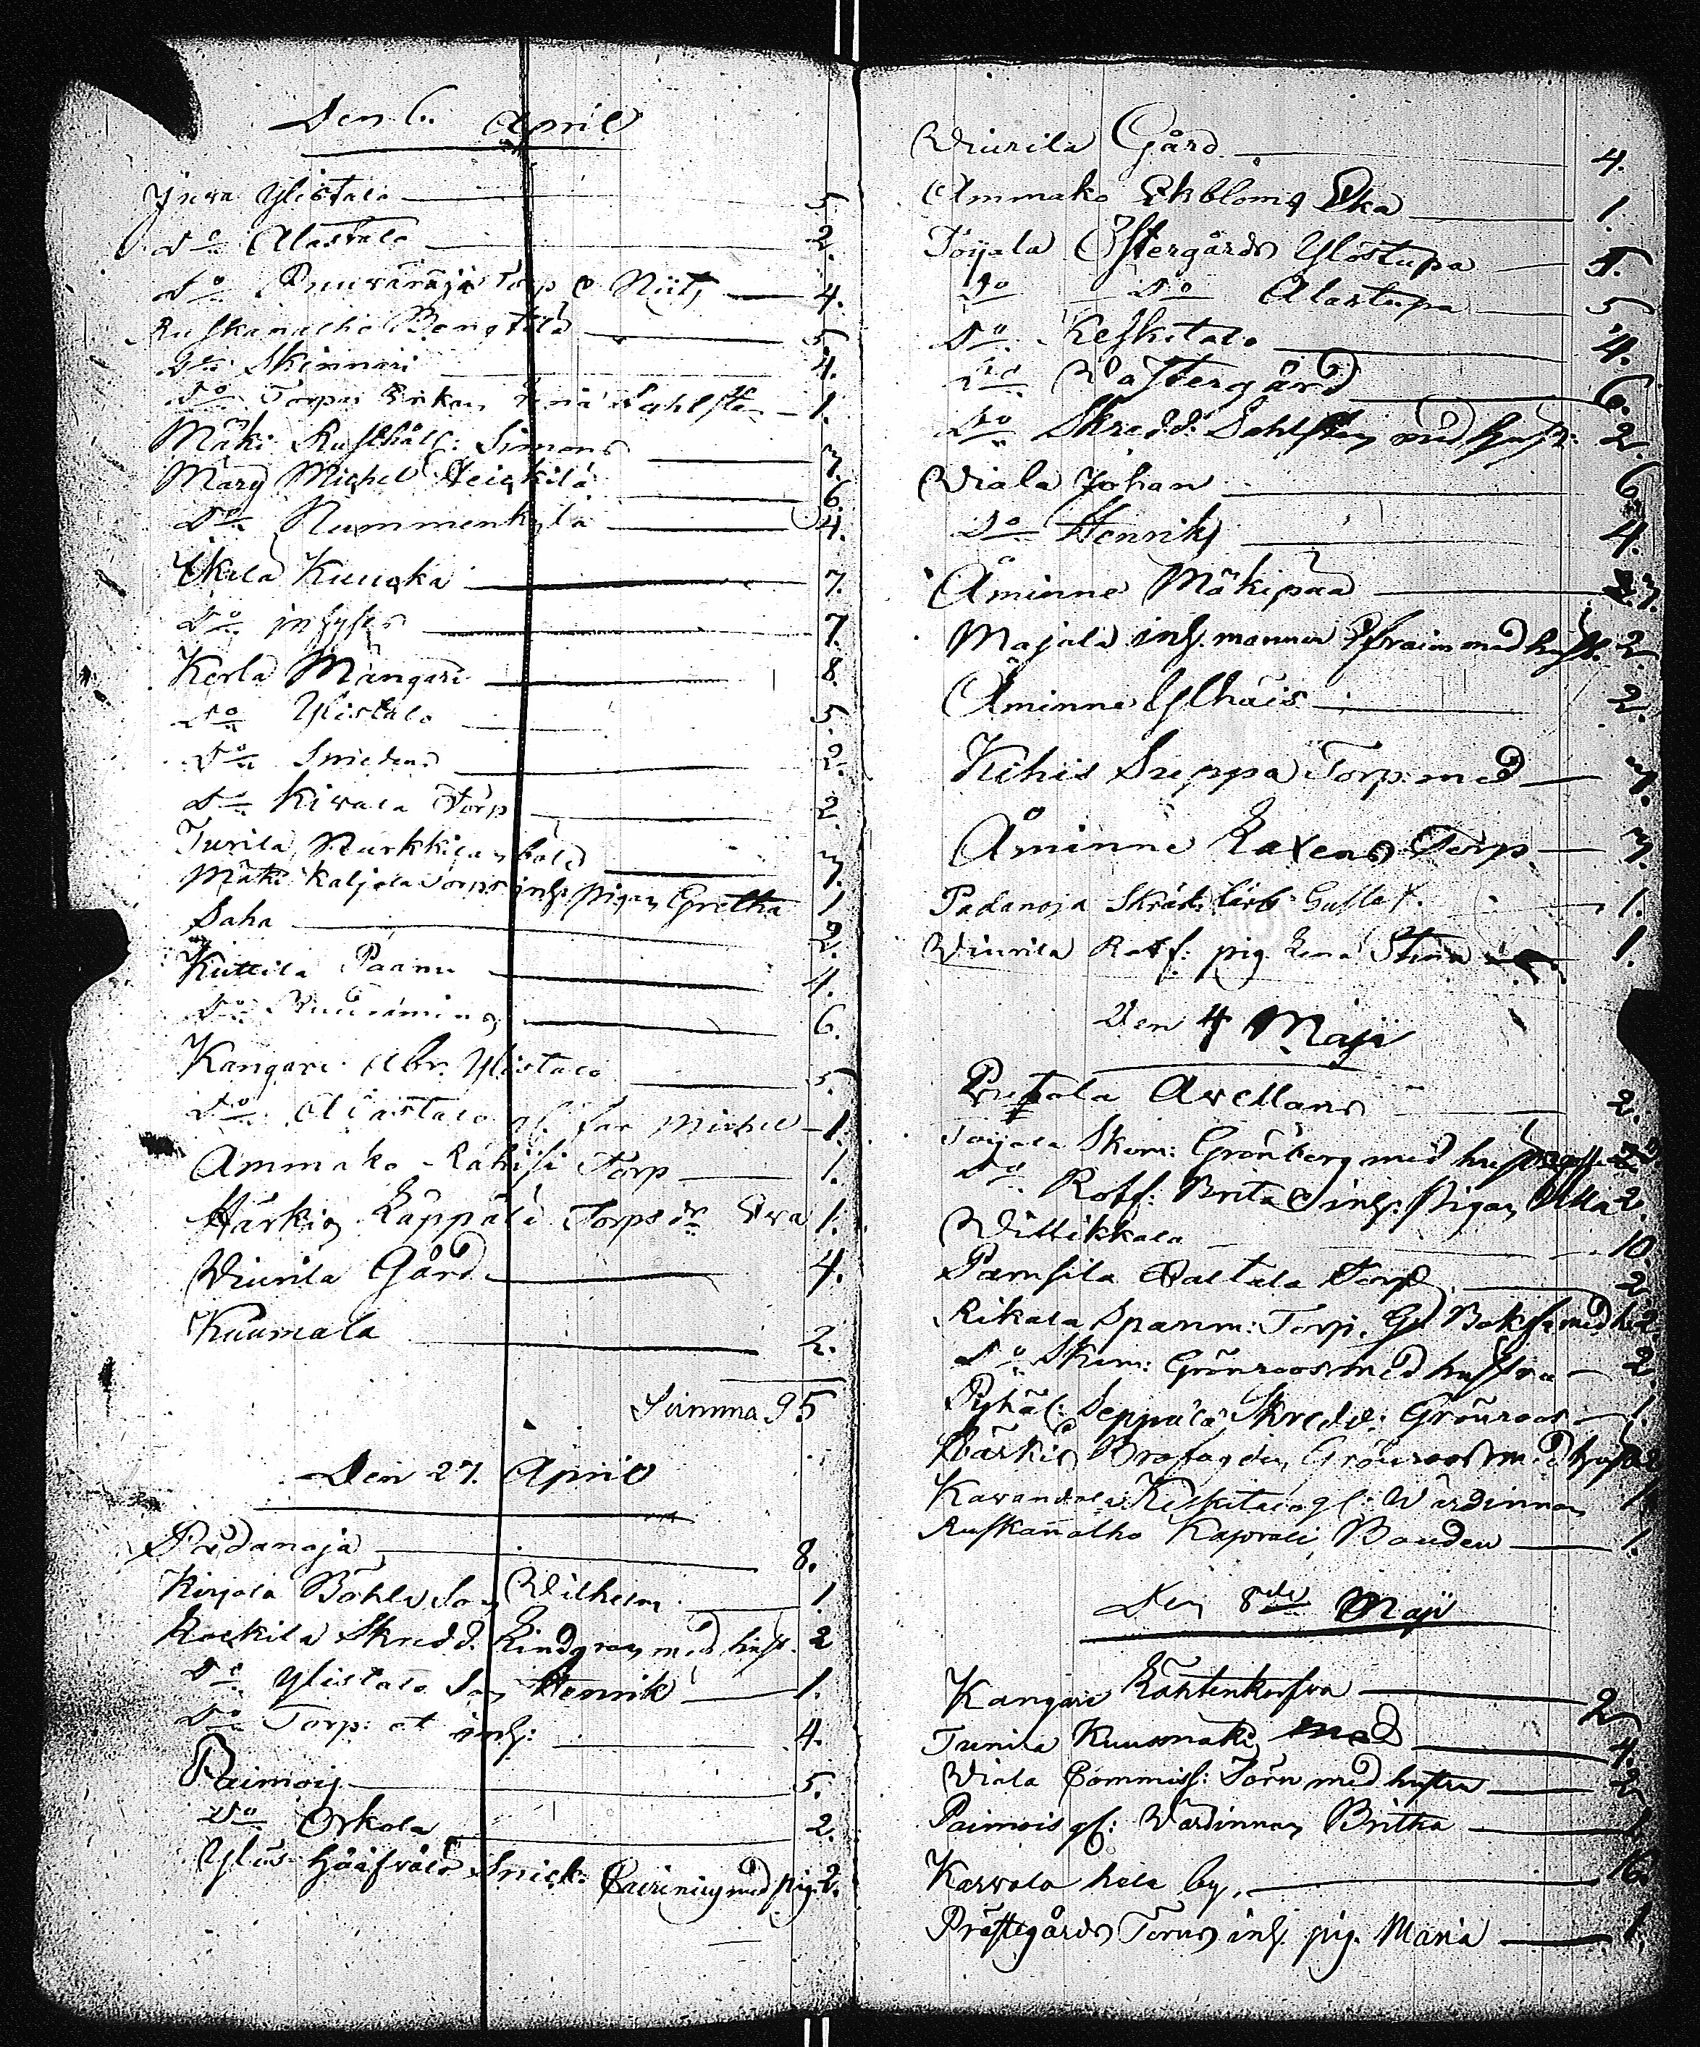 Den 6. April
Ylistalo 5
Do Alastalo 2.
Do Torp o 4.
Bengtilä 5.
Do Skinnari 4.
Do Torpar Enkan 1.
Mäki Rusthåll: Simons 7.
Märy Michel Heickilä 6.
Do Nummenkylä 4.
Ikala Kuucka 7.
Do inhyses 7.
Kerla Mängari 8.
Do Ylistalo 5.
Do Smedens 2.
Do Kivala Torp 2.
Turila 7.
Mäki Kaljala Torps inh. pigan Gretha 1
Saha 2.
Kuttila Paanu 4.
Do 6.
Kangari Abr. Ylistalo 5.
Do Alastalo gl. far Michel 1.
Ammako Torp 1.
Härkis Läppälä Torps Eva 1.
Viurila Gård 4.
Kuumala 2.
Summa 95
Den 27. April
Padanoja 8.
Kirjola Son Wilhelm 1
Skredd. Lindgren med hust. 2
Do Ylistalo Son Henrik 1.
Do Torp: et inh: 4.
Paimois 5.
Do Orkola 2.
Snick: med pig. 2.
Viurila Gård 4.
Ammako Ekbloms Eka 1.
Toijala Östergårds Ylöstupa 5.
Do Do Alastupa 5
Do Keskitalo 4.
Do Vestergård 6.
Do Skredd: Sahlsten med hustr: 2.
Viala Johan 6
Do Henriks 4.
Åminne Mäkipää 7.
Majala inh. mannen Efraim med hust. 2.
Åminne Ylhäis 2.
Kihis Seppä Torp: med 7.
Åminne Laxens Torp 7.
Padanoja Skräd. lärb: Gustaf. 1.
Viurila Rotf: pig. Lena Stina 1.
Den 4 Maji
Avellans 2.
Toijala Skom: Grönberg med hustr
Do Rotf: Brita o inh: pigan Ulla 2.
Wittikkala 10.
Pamsila Torp 2
Rikala Spanm: Torp. Gl
Do Skom: Grönroos med hustru 2.
Pyhäl: Seppälä Skredd: Grönroos 1.
Härkis Grönroos med hust 2
Karandola Keskitalo gl: Wärdinnan 1.
Kaprali Bonden 1.
Den 8de Maji
Kangari Lähtenkorfva 2
Turila Kuusmäki med 4.
Viala Commiss: Törn med hustru 2
Paimois gl: Wärdinnan Britha 1
Karvola hela by, 16.
Prästegårds Torps inh. pig. Maria 1.